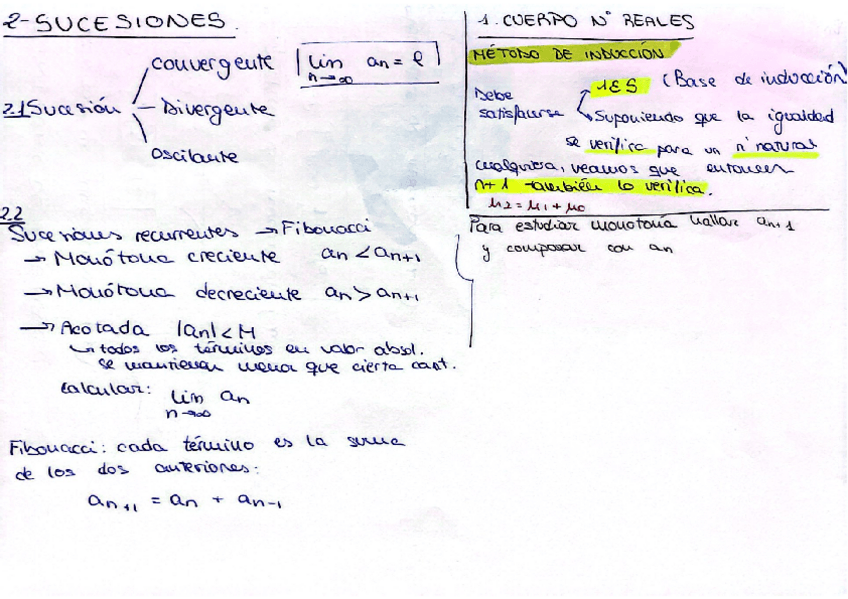 2-SUCESIONES.
2.1 Sucesión
convergente
lim an = l
n→∞
Divergente
oscilante
2.2
Sucesiones recurrentes → Fibonacci
→ Monótona creciente an < an+1
→ Monótona decreciente an > an+1
→ Acotada |an| < M
↳ todos los términos en valor absol.
se mantienen menor que cierta cant.
calcular: lim an
n→∞
Fibonacci: cada término es la suma
de los dos anteriores:
an+1 = an + an-1
1. CUERPO Nº REALES
MÉTODO DE INDUCCIÓN
Debe
satisfacerse
1ES (Base de inducción)
Suponiendo que la igualdad
se verifica para un nº natural
cualquiera, veamos que entonces
n+1 también lo verifica.
μ2 = μ1 + μ0
Para estudiar monotonía hallar an+1
y comparar con an